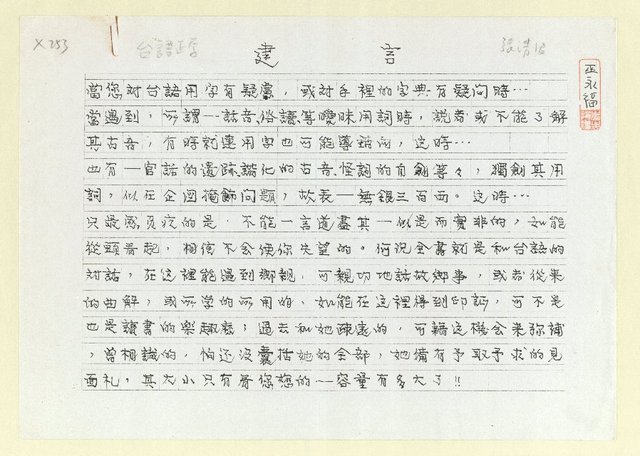 X253
台語正字
建言
巫永福
當您對台語用字有疑慮，或對手裡的字典有疑問時…
當遇到，所謂一話音、俗讀等曖昧用詞時，說者或不能了解
其古音，有時就連用字也可能導錯向，這時…
也有一官話的遺跡、諧化的古音、怪詞的自創等々，獨創其用
詞，似在企圖掩飾問題，故表一無銀三百両。這時…
只最感負疚的是，不能一言道盡其一似是而實非的，如能
從頭看起，相信不会使你失望的。何況全書就是和台語的
対話，在這裡能遇到鄉親，可親切地話故鄉事，或者從來
的曲解，或所学的所用的，如能在這裡得到印証，可不是
也是讀書的樂趣麼；過去和她疎遠的，可藉這機会來弥補
，曾相識的，怕还沒囊括她的全部，她備有予取予求的見
面礼，其大小只有看您想的一容量有多大了!!